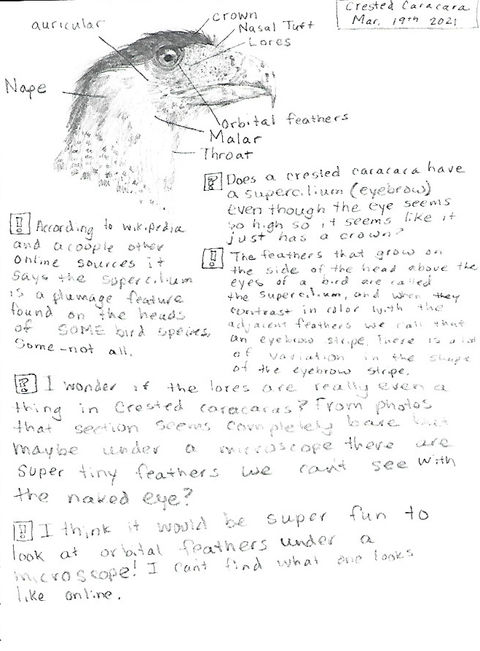 Crested Caracara
Mar. 19th 2021
crown
auricular
Nasal Tuft
Lores
Nape
Orbital feathers
Malar
Throat
? Does a crested caracara have
a supercilium (eyebrow)
even though the eye seems
so high so it seems like it
just has a crown?
! According to wikipedia
and a couple other
online sources it
says the supercilium
is a plumage feature
found on the heads
of SOME bird species.
Some-not all.
! The feathers that grow on
the side of the head above the
eyes of a bird are called
the supercilium, and when they
contrast in color with the
adjacent feathers we call that
an eyebrow stripe. There is a lot
of variation in the shape
of the eyebrow stripe.
? I wonder if the lores are really even a
thing in Crested caracaras? From photos
that section seems completely bare but
maybe under a microscope there are
super tiny feathers we cant see with
the naked eye?
! I think it would be super fun to
look at orbital feathers under a
microscope! I cant find what one looks
like online.